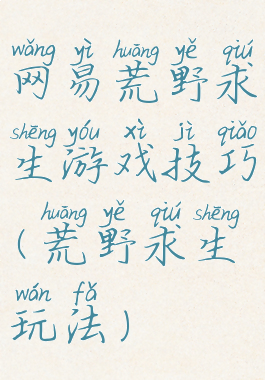 wǎng yì huāng yě qiú
网易荒野求
shēng yóu xì jì qiǎo
生游戏技巧
huāng yě qiú shēng
(荒野求生
wán fǎ
玩法)